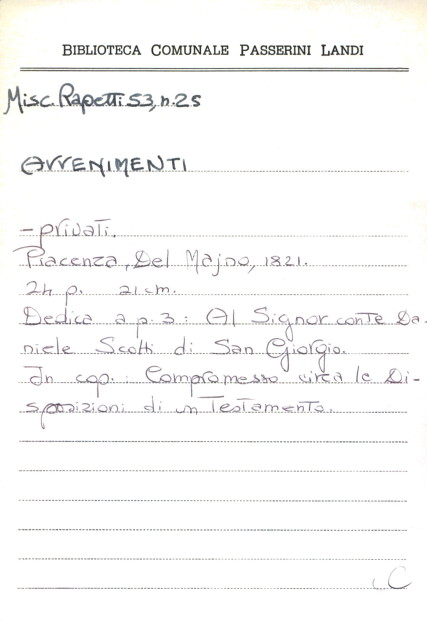 BIBLIOTECA COMUNALE PASSERINI LANDI
Misc. Rapetti 53, n. 25
AVVENIMENTI
- privati.
Piacenza, Del Majno, 1821.
24 p. 21 cm.
Dedica a p. 3: Al Signor conte Da-
niele Scotti di San Giorgio.
In cop.: Compromesso circa le Di-
sposizioni di un Testamento.
C